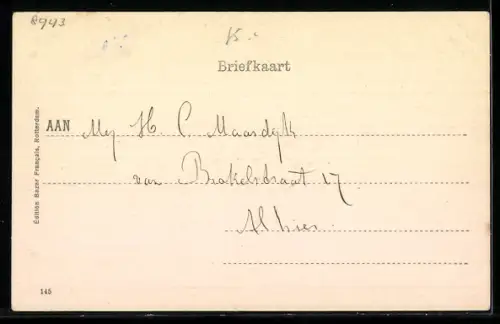 8943
15.-
Briefkaart
AAN Mej H. C. Maasdijk
van Brakelstraat 17
Alhier
Edition Bazar Français, Rotterdam.
145